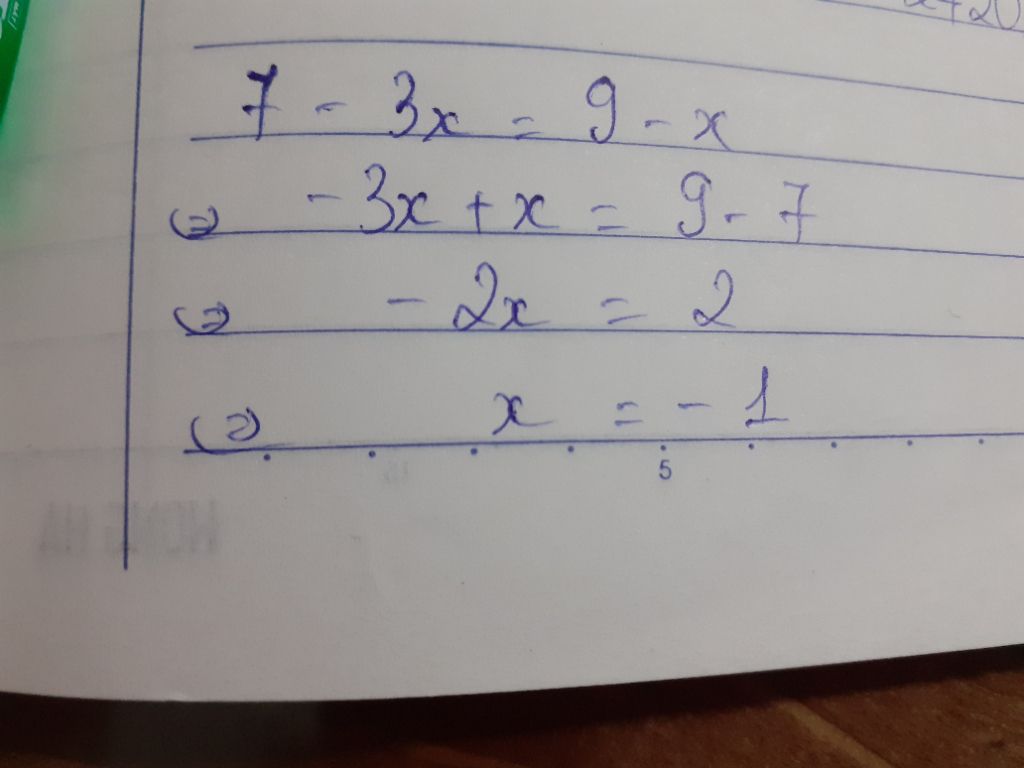 7 - 3x = 9 - x
⇔ - 3x + x = 9 - 7
⇔ - 2x = 2
⇔ x = - 1
5